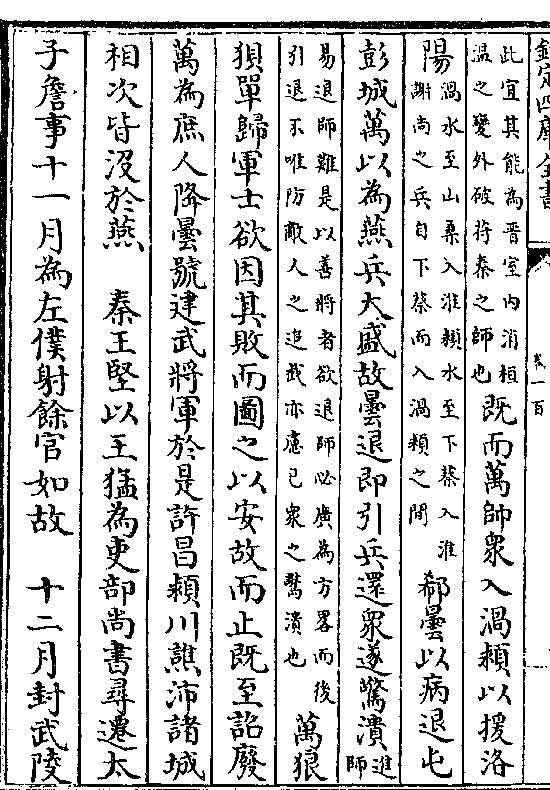 欽定四庫全書
卷一百
此宜其能為晉室內消桓
溫之變外破苻秦之師也
既而萬帥衆入渦潁以援洛
陽
渦水至山桑入淮潁水至下蔡入淮
謝尚之兵自下蔡而入渦潁之間
郗曇以病退屯
彭城萬以為燕兵大盛故曇退即引兵還衆遂驚潰
進
師
易退師難是以善將者欲退師必廣為方畧而後
引退不唯防敵人之追或亦慮己衆之驚潰也
萬狼
狽單歸軍士欲因其敗而圖之以安故而止既至詔廢
萬為庶人降曇號建武將軍於是許昌潁川譙沛諸城
相次皆沒於燕　秦王堅以王猛為吏部尚書尋遷太
子詹事十一月為左僕射餘官如故　十二月封武陵